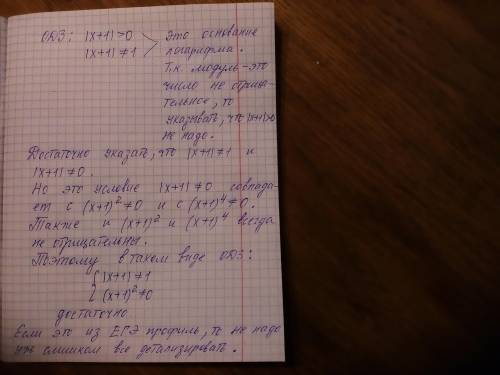 ОДЗ: |x+1|>0 это основание
|x+1|≠1 логарифма.
Т.к. модуль-это
число не отрица-
тельное, то
указывать, что |x+1|>0
не надо.
Достаточно указать, что |x+1|≠1 и
|x+1|≠0.
Но это условие |x+1|≠0 совпада-
ет с (x+1)²≠0 и с (x+1)⁴≠0.
Также и (x+1)² и (x+1)⁴ всегда
не отрицательны.
Поэтому в таком виде ОДЗ:
{ |x+1|≠1
(x+1)²≠0
достаточно
Если это из ЕГЭ профиль, то не надо
уж слишком все детализировать.